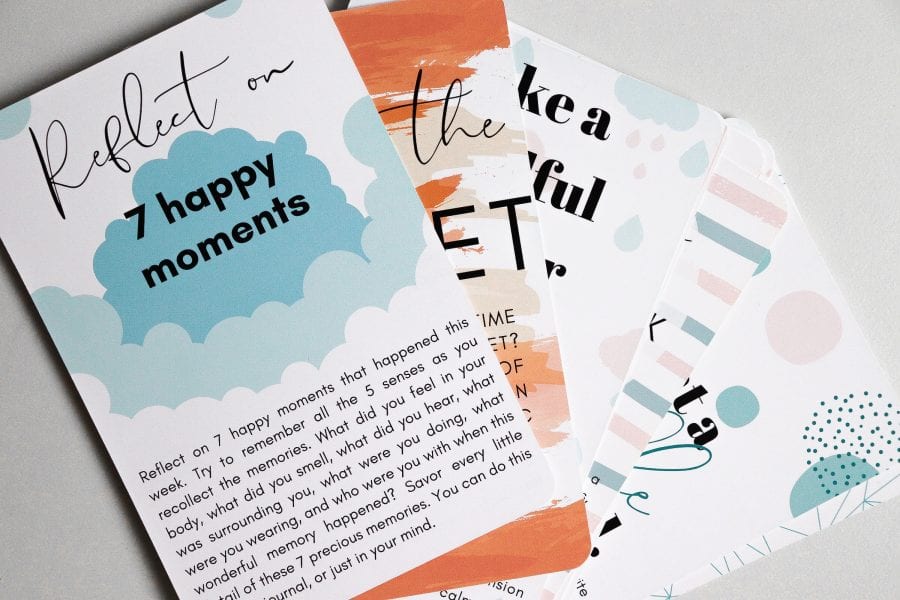 Reflect on
7 happy
moments
Reflect on 7 happy moments that happened this
week. Try to remember all the 5 senses as you
recollect the memories. What did you feel in your
body, what did you smell, what did you hear, what
was surrounding you, what were you doing, what
were you wearing, and who were you with when this
wonderful memory happened? Savor every little
tail of these 7 precious memories. You can do this
journal, or just in your mind.
the
ET
TIME
ET?
OF
N
C
ke a
ful
r
K
t a
!